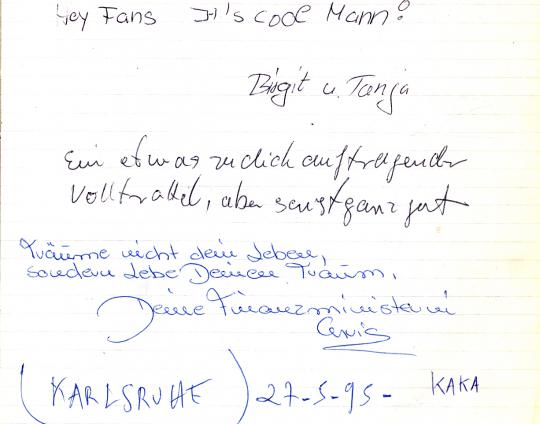 Hey Fans It's cool Mann!
Birgit u. Tanja
Ein etwas zu dick auftragender
Volltrottel, aber sonst ganz gut
Träume nicht dein Leben,
sondern Lebe Deinen Traum,
Deine Finanzministerin
(KARLSRUHE) 27-5-95- KAKA